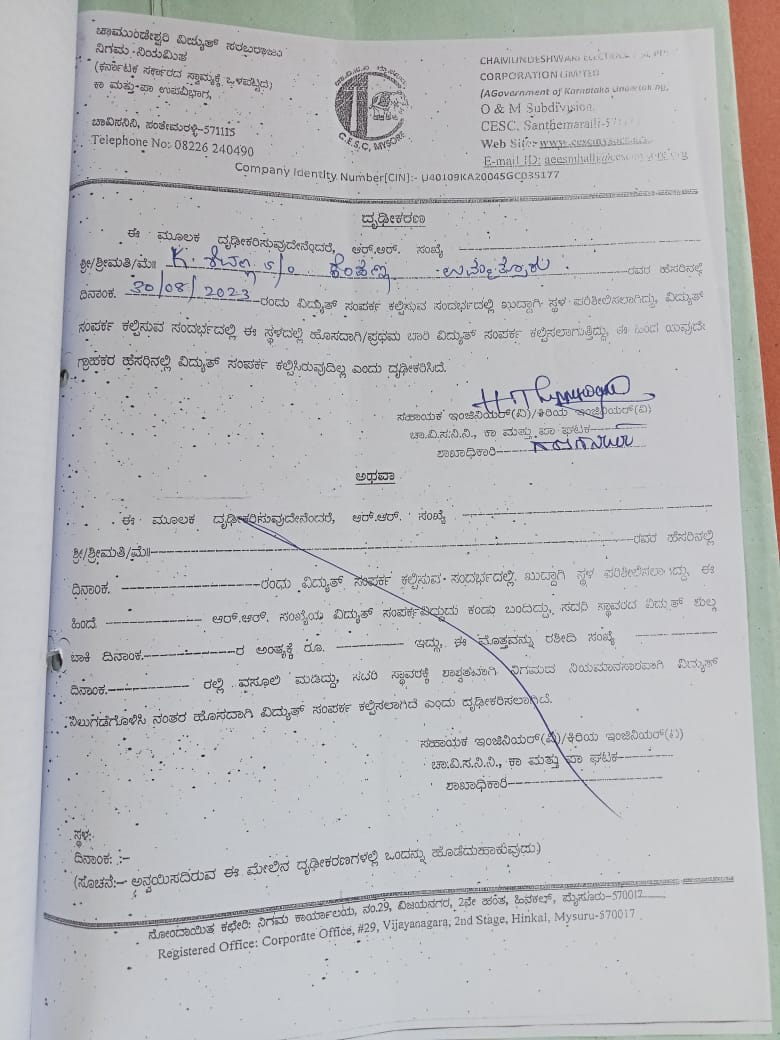 ಚಾಮುಂಡೇಶ್ವರಿ ವಿದ್ಯುತ್ ಸರಬರಾಜು
ನಿಗಮ ನಿಯಮಿತ
(ಕರ್ನಾಟಕ ಸರ್ಕಾರದ ಸ್ವಾಮ್ಯಕ್ಕೆ ಒಳಪಟ್ಟಿದೆ)
ಕಾ ಮತ್ತು ಪಾ ಉಪವಿಭಾಗ,
ಚಾವಿಸನಿನಿ, ಸಂತೇಮರಳ್ಳಿ-571115
Telephone No: 08226 240490
C.E.S.C, MYSORE
CHAMUNDESHWARI
CORPORATION LIMITED
(A Government of Karnataka
O & M Subdivision,
CESC, Santhemaralli-
Web Site:
E-mail ID:
Company Identity Number[CIN]:- U40109KA2004SGC035177
ದೃಢೀಕರಣ
ಈ ಮೂಲಕ ದೃಢೀಕರಿಸುವುದೇನೆಂದರೆ, ಆರ್.ಆರ್. ಸಂಖ್ಯೆ
ಶ್ರೀ/ಶ್ರೀಮತಿ/ಮೆ॥ K. S/o ಕೆಂಪಣ್ಣ ರವರ ಹೆಸರಿನಲ್ಲಿ
ದಿನಾಂಕ. 30/08/2023 ರಂದು ವಿದ್ಯುತ್ ಸಂಪರ್ಕ ಕಲ್ಪಿಸುವ ಸಂದರ್ಭದಲ್ಲಿ ಖುದ್ದಾಗಿ ಸ್ಥಳ ಪರಿಶೀಲಿಸಲಾಗಿದ್ದು, ವಿದ್ಯುತ್
ಸಂಪರ್ಕ ಕಲ್ಪಿಸುವ ಸಂದರ್ಭದಲ್ಲಿ ಈ ಸ್ಥಳದಲ್ಲಿ ಹೊಸದಾಗಿ/ಪ್ರಥಮ ಬಾರಿ ವಿದ್ಯುತ್ ಸಂಪರ್ಕ ಕಲ್ಪಿಸಲಾಗುತ್ತಿದ್ದು, ಈ ಹಿಂದೆ ಯಾವುದೇ
ಗ್ರಾಹಕರ ಹೆಸರಿನಲ್ಲಿ ವಿದ್ಯುತ್ ಸಂಪರ್ಕ ಕಲ್ಪಿಸಿರುವುದಿಲ್ಲ ಎಂದು ದೃಢೀಕರಿಸಿದೆ.
ಸಹಾಯಕ ಇಂಜಿನಿಯರ್(ವಿ)/ಕಿರಿಯ ಇಂಜಿನಿಯರ್(ವಿ)
ಚಾ.ವಿ.ಸ.ನಿ.ನಿ., ಕಾ ಮತ್ತು ಪಾ ಘಟಕ
ಶಾಖಾಧಿಕಾರಿ
ಅಥವಾ
ಈ ಮೂಲಕ ದೃಢೀಕರಿಸುವುದೇನೆಂದರೆ, ಆರ್.ಆರ್. ಸಂಖ್ಯೆ
ಶ್ರೀ/ಶ್ರೀಮತಿ/ಮೆ॥ ರವರ ಹೆಸರಿನಲ್ಲಿ
ದಿನಾಂಕ. ರಂಧು ವಿದ್ಯುತ್ ಸಂಪರ್ಕ ಕಲ್ಪಿಸುವ ಸಂದರ್ಭದಲ್ಲಿ ಖುದ್ದಾಗಿ ಸ್ಥಳ ಪರಿಶೀಲಿಸಲಾಗಿದ್ದು, ಈ
ಹಿಂದೆ ಆರ್.ಆರ್. ಸಂಖ್ಯೆಯ ವಿದ್ಯುತ್ ಸಂಪರ್ಕವಿದ್ದುದು ಕಂಡು ಬಂದಿದ್ದು, ಸದರಿ ಸ್ಥಾವರದ ವಿದ್ಯುತ್ ಶುಲ್ಕ
ಬಾಕಿ ದಿನಾಂಕ. ರ ಅಂತ್ಯಕ್ಕೆ ರೂ. ಇದ್ದು, ಈ ಮೊತ್ತವನ್ನು ರಶೀದಿ ಸಂಖ್ಯೆ
ದಿನಾಂಕ. ರಲ್ಲಿ ವಸೂಲಿ ಮಡಿದ್ದು, ಸದರಿ ಸ್ಥಾವರಕ್ಕೆ ಶಾಶ್ವತವಾಗಿ ನಿಗಮದ ನಿಯಮಾನಸಾರವಾಗಿ ವಿದ್ಯುತ್
ನಿಲುಗಡೆಗೊಳಿಸಿ ನಂತರ ಹೊಸದಾಗಿ ವಿದ್ಯುತ್ ಸಂಪರ್ಕ ಕಲ್ಪಿಸಲಾಗಿದೆ ಎಂದು ದೃಢೀಕರಿಸಲಾಗಿದೆ.
ಸಹಾಯಕ ಇಂಜಿನಿಯರ್(ವಿ)/ಕಿರಿಯ ಇಂಜಿನಿಯರ್(ವಿ)
ಚಾ.ವಿ.ಸ.ನಿ.ನಿ., ಕಾ ಮತ್ತು ಪಾ ಘಟಕ
ಶಾಖಾಧಿಕಾರಿ
ಸ್ಥಳ:
ದಿನಾಂಕ: :-
(ಸೂಚನೆ:- ಅನ್ವಯಿಸದಿರುವ ಈ ಮೇಲಿನ ದೃಢೀಕರಣಗಳಲ್ಲಿ ಒಂದನ್ನು ಹೊಡೆದುಹಾಕುವುದು)
ನೋಂದಾಯಿತ ಕಛೇರಿ: ನಿಗಮ ಕಾರ್ಯಾಲಯ, ನಂ.29, ವಿಜಯನಗರ, 2ನೇ ಹಂತ, ಹಿನಕಲ್, ಮೈಸೂರು-570017
Registered Office: Corporate Office, #29, Vijayanagara, 2nd Stage, Hinkal, Mysuru-570017